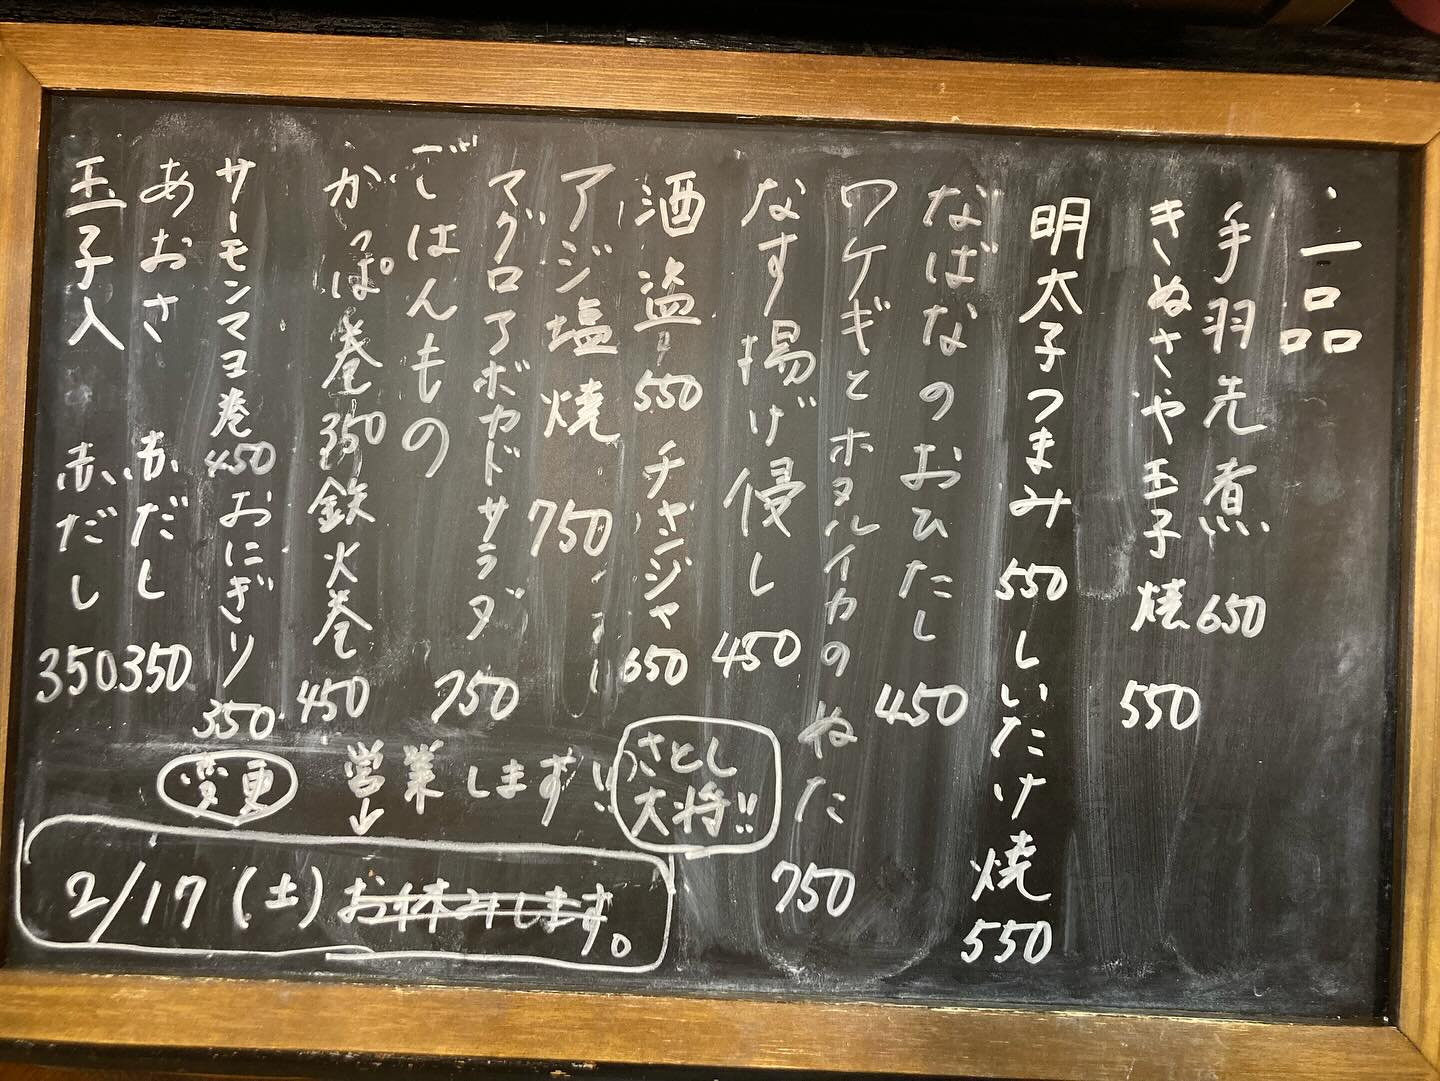 ・一品
手羽先煮 650
きぬさや玉子焼 550
明太子つまみ 550 しいたけ焼 550
なばなのおひたし 450
ワケギとホタルイカのぬた 750
なす揚げ侵し 450
酒盗 550 チャンジャ 650
アジ塩焼 750
マグロアボカドサラダ 750
ごはんもの
かっぱ巻 350 鉄火巻 450
サーモンマヨ巻 450 おにぎり 350
あおさ 赤だし 350
玉子入 赤だし 350
変更 営業します!! さとし大将!!
↓
2/17(土)お休みします。